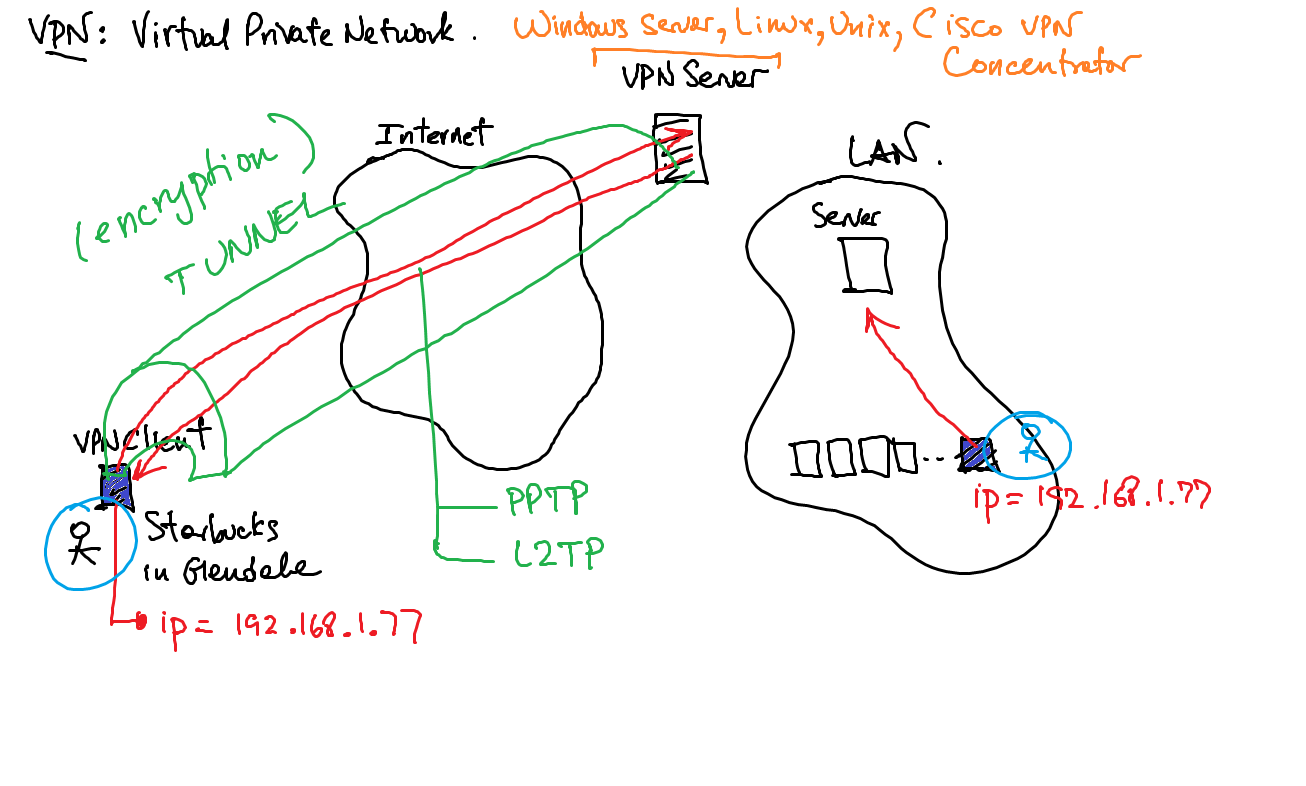 VPN: Virtual Private Network. Windows Server, Linux, Unix, Cisco VPN
Concentrator
VPN Server
Internet
LAN.
(encryption)
TUNNEL
Server
VPN Client
ip = 192.168.1.77
PPTP
Starbucks
L2TP
in Glendale
ip = 192.168.1.77